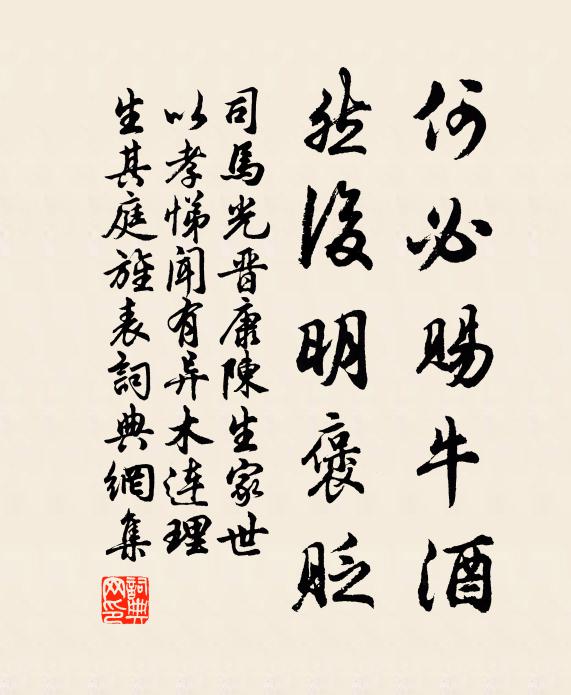 何必賜牛酒
然後明褒貶
司馬光晋康陳生家世
以孝悌聞有异木连理
生其庭旌表詞典網集
詞典網印